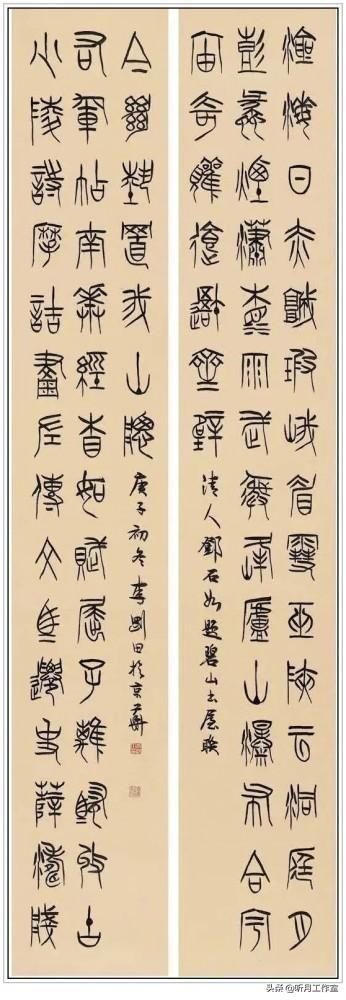 滄海日赤城瑕峨眉雪巫陝云洞庭月
彭蠡煙瀟湘雨武夷峰廬山瀑布合宇
宙奇觀繪吾齋壁
清人鄧石如題碧山書屋聯
小陵詩摩詰畫左傳文馬遷史薛濤牋
右軍帖南華經相如賦屈子離騷收古
今絕藝置我山牕
庚子初冬李剛田於京華
头条 @听月工作室